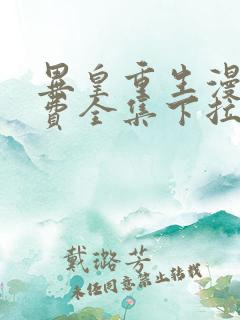 异皇重生漫
费全集下拉
戴璐芳
未经同意禁止转载